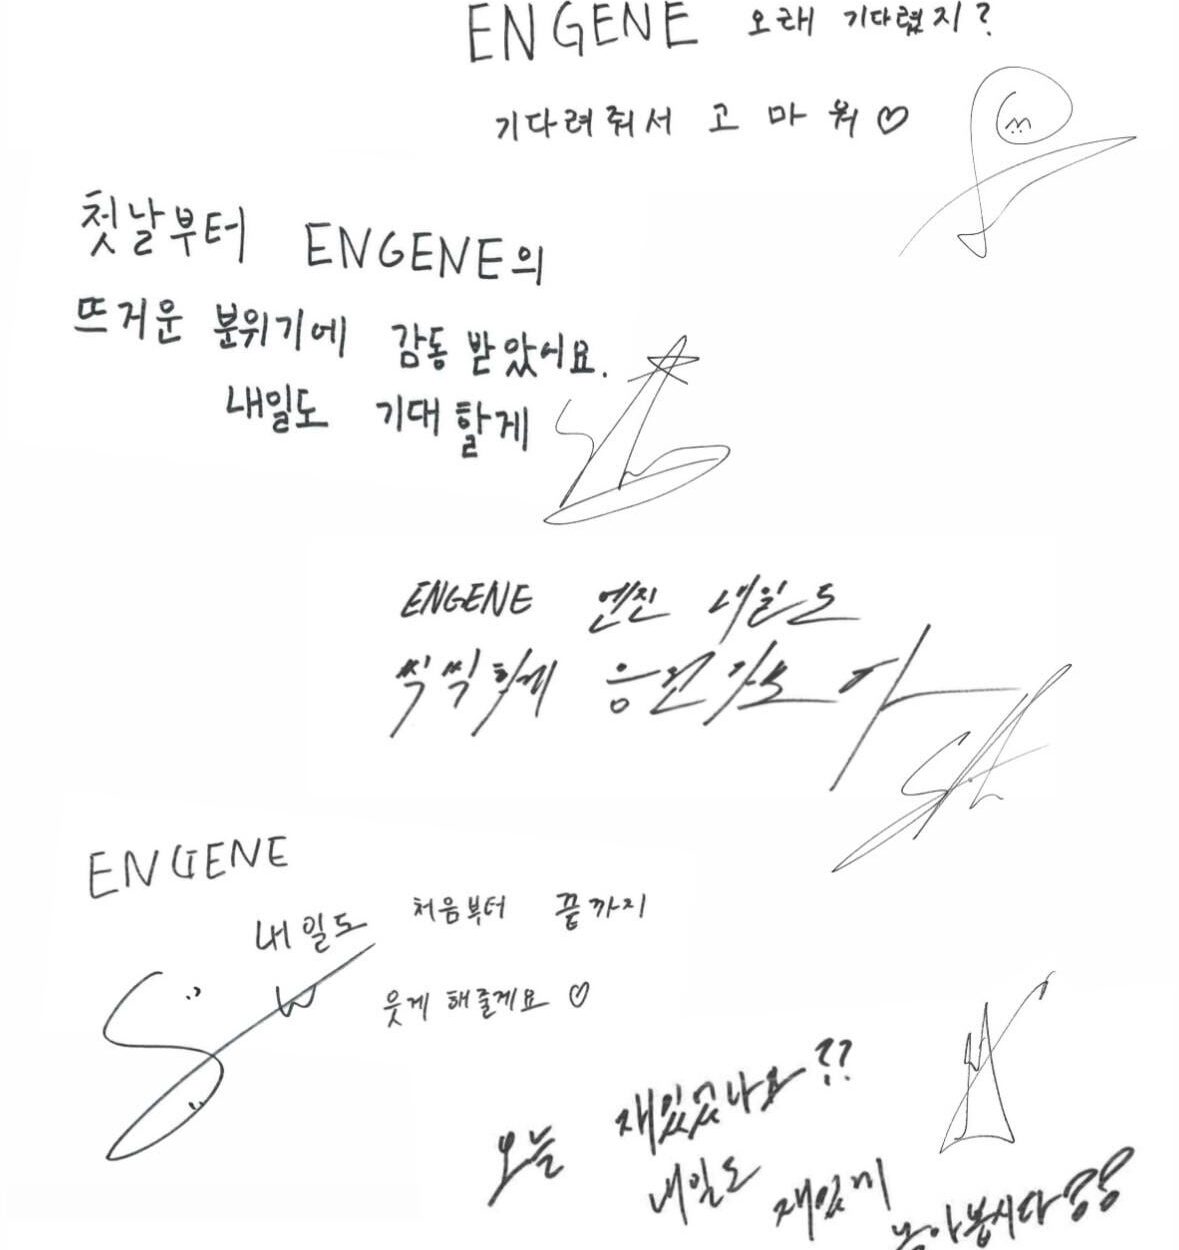 ENGENE 오래 기다렸지?
기다려줘서 고마워♡
첫날부터 ENGENE의
뜨거운 분위기에 감동 받았어요.
내일도 기대할게
ENGENE 엔진 내일도
씩씩하게 응원가보자
ENGENE
내일도 처음부터 끝까지
웃게 해줄게요 ♡
오늘 재밌었나요??
내일도 재밌게
놀아봅시다